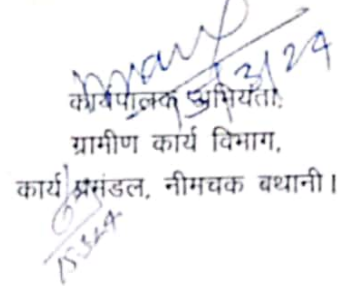 15/3/24
कार्यपालक अभियंता,
ग्रामीण कार्य विभाग,
कार्य प्रमंडल, नीमचक बथानी।
15.3.24